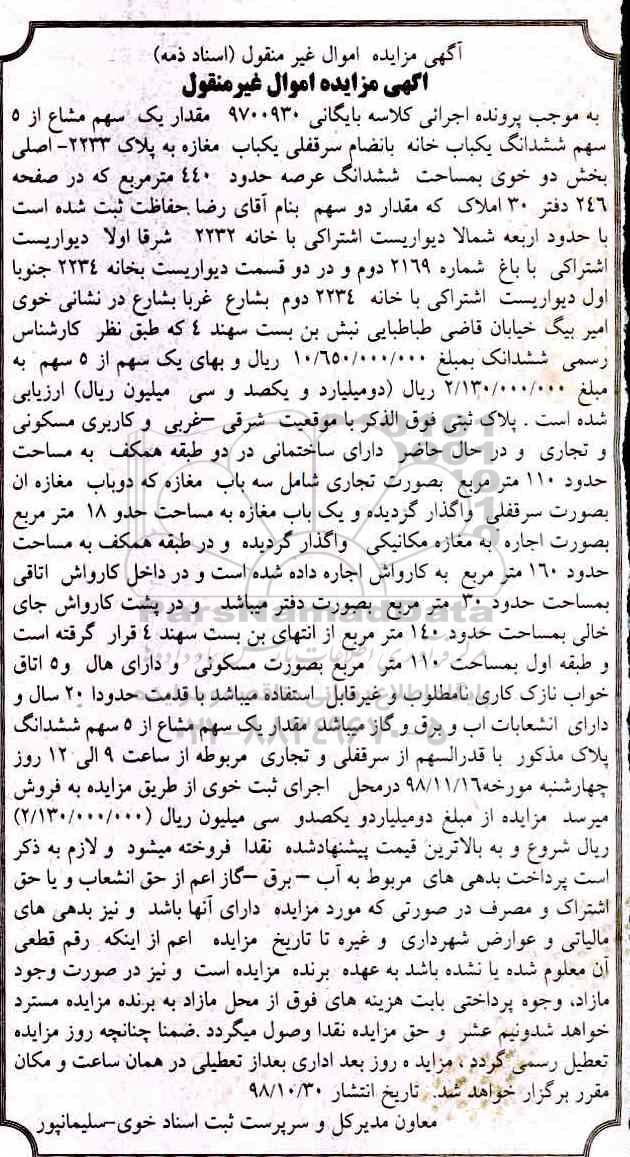 آگهی مزایده اموال غیر منقول (اسناد ذمه)
اگهی مزایده اموال غیرمنقول
به موجب پرونده اجرائی کلاسه بایگانی ۹۷۰۰۹۳۰ مقدار یک سهم مشاع از ۵
سهم ششدانگ یکباب خانه بانضام سرقفلی یکباب مغازه به پلاک ۲۲۳۳- اصلی
بخش دو خوی بمساحت ششدانگ عرصه حدود ۴۴۰ مترمربع که در صفحه
۲۴۶ دفتر ۳۰ املاک که مقدار دو سهم بنام آقای رضا حفاظت ثبت شده است
با حدود اربعه شمالا دیواریست اشتراکی با خانه ۲۲۳۲ شرقا اولا دیواریست
اشتراکی با باغ شماره ۲۱۶۹ دوم و در دو قسمت دیواریست بخانه ۲۲۳۴ جنوبا
اول دیواریست اشتراکی با خانه ۲۲۳۴ دوم بشارع غربا بشارع در نشانی خوی
امیر بیگ خیابان قاضی طباطبایی نبش بن بست سهند ۴ که طبق نظر کارشناس
رسمی ششدانک بمبلغ ۱۰/۶۵۰/۰۰۰/۰۰۰ ریال و بهای یک سهم از ۵ سهم به
مبلغ ۲/۱۳۰/۰۰۰/۰۰۰ ریال (دومیلیارد و یکصد و سی میلیون ریال) ارزیابی
شده است . پلاک ثبتی فوق الذکر با موقعیت شرقی –غربی و کاربری مسکونی
و تجاری و در حال حاضر دارای ساختمانی در دو طبقه همکف به مساحت
حدود ۱۱۰ متر مربع بصورت تجاری شامل سه باب مغازه که دوباب مغازه ان
بصورت سرقفلی واگذار گردیده و یک باب مغازه به مساحت حدو ۱۸ متر مربع
بصورت اجاره به مغازه مکانیکی واگذار گردیده و در طبقه همکف به مساحت
حدود ۱۶۰ متر مربع به کارواش اجاره داده شده است و در داخل کارواش اتاقی
بمساحت حدود ۳۰ متر مربع بصورت دفتر میباشد و در پشت کارواش جای
خالی بمساحت حدود ۱۴۰ متر مربع از انتهای بن بست سهند ۴ قرار گرفته است
و طبقه اول بمساحت ۱۱۰ متر مربع بصورت مسکونی و دارای هال و۵ اتاق
خواب نازک کاری نامطلوب و غیرقابل استفاده میباشد با قدمت حدودا ۲۰ سال و
دارای انشعابات اب و برق و گاز میباشد مقدار یک سهم مشاع از ۵ سهم ششدانگ
پلاک مذکور با قدرالسهم از سرقفلی و تجاری مربوطه از ساعت ۹ الی ۱۲ روز
چهارشنبه مورخه۹۸/۱۱/۱۶ درمحل اجرای ثبت خوی از طریق مزایده به فروش
میرسد مزایده از مبلغ دومیلیاردو یکصدو سی میلیون ریال (۲/۱۳۰/۰۰۰/۰۰۰)
ریال شروع و به بالاترین قیمت پیشنهادشده نقدا فروخته میشود و لازم به ذکر
است پرداخت بدهی های مربوط به آب – برق –گاز اعم از حق انشعاب و یا حق
اشتراک و مصرف در صورتی که مورد مزایده دارای آنها باشد و نیز بدهی های
مالیاتی و عوارض شهرداری و غیره تا تاریخ مزایده اعم از اینکه رقم قطعی
آن معلوم شده یا نشده باشد به عهده برنده مزایده است و نیز در صورت وجود
مازاد، وجوه پرداختی بابت هزینه های فوق از محل مازاد به برنده مزایده مسترد
خواهد شدونیم عشر و حق مزایده نقدا وصول میگردد .ضمنا چنانچه روز مزایده
تعطیل رسمی گردد ، مزاید ه روز بعد اداری بعداز تعطیلی در همان ساعت و مکان
مقرر برگزار خواهد شد. تاریخ انتشار ۹۸/۱۰/۳۰
معاون مدیرکل و سرپرست ثبت اسناد خوی–سلیمانپور
ParsNamadData